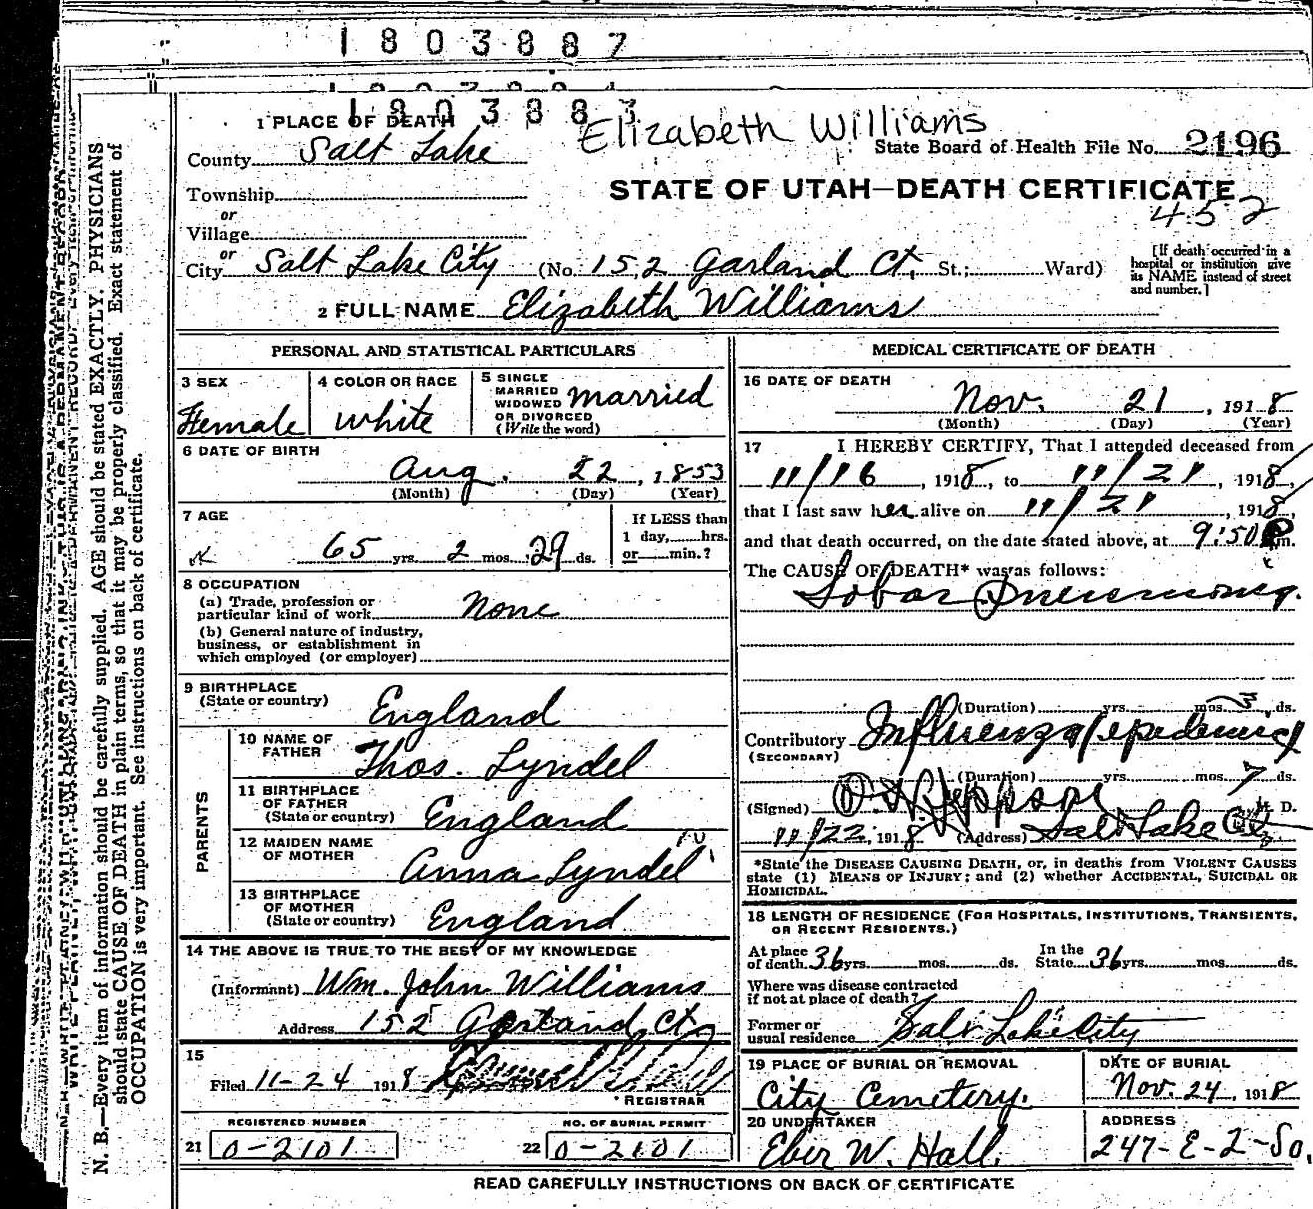 1803887
1803883
Elizabeth Williams
1 PLACE OF DEATH
County Salt Lake
State Board of Health File No. 2196
Township
STATE OF UTAH—DEATH CERTIFICATE
452
or
Village
or
City Salt Lake City (No. 152 Garland Ct. St.; Ward)
[If death occurred in a
hospital or institution give
its NAME instead of street
and number.]
2 FULL NAME Elizabeth Williams
PERSONAL AND STATISTICAL PARTICULARS
3 SEX
Female
4 COLOR OR RACE
White
5 SINGLE
MARRIED
WIDOWED
OR DIVORCED
(Write the word)
married
6 DATE OF BIRTH
Aug. 22, 1853
(Month) (Day) (Year)
7 AGE
65 yrs. 2 mos. 29 ds.
If LESS than
1 day, hrs.
or min.?
8 OCCUPATION
(a) Trade, profession or
particular kind of work None
(b) General nature of industry,
business, or establishment in
which employed (or employer)
9 BIRTHPLACE
(State or country) England
10 NAME OF
FATHER Thos. Lyndel
PARENTS
11 BIRTHPLACE
OF FATHER
(State or country) England
12 MAIDEN NAME
OF MOTHER Anna Lyndel
13 BIRTHPLACE
OF MOTHER
(State or country) England
14 THE ABOVE IS TRUE TO THE BEST OF MY KNOWLEDGE
(Informant) Wm. John Williams
Address 152 Garland Ct.
15
Filed 11-24 1918
REGISTRAR
REGISTERED NUMBER
21 0-2101
NO. OF BURIAL PERMIT
22 0-2101
MEDICAL CERTIFICATE OF DEATH
16 DATE OF DEATH
Nov. 21, 1918
(Month) (Day) (Year)
17 I HEREBY CERTIFY, That I attended deceased from
11/16, 1918, to 11/21, 1918,
that I last saw her alive on 11/21, 1918,
and that death occurred, on the date stated above, at 9:50 P m.
The CAUSE OF DEATH* was as follows:
Lobar Pneumonia
(Duration) yrs. mos. 3 ds.
Contributory Influenza (epidemic)
(SECONDARY)
(Duration) yrs. mos. 7 ds.
(Signed) M. D.
11/22, 1918 (Address) Salt Lake City
*State the DISEASE CAUSING DEATH, or, in deaths from VIOLENT CAUSES
state (1) MEANS OF INJURY; and (2) whether ACCIDENTAL, SUICIDAL OR
HOMICIDAL.
18 LENGTH OF RESIDENCE (FOR HOSPITALS, INSTITUTIONS, TRANSIENTS,
OR RECENT RESIDENTS.)
At place
of death 36 yrs. mos. ds.
In the
State 36 yrs. mos. ds.
Where was disease contracted
if not at place of death?
Former or
usual residence Salt Lake City
19 PLACE OF BURIAL OR REMOVAL
City Cemetery.
DATE OF BURIAL
Nov. 24, 1918
20 UNDERTAKER
Eber W. Hall.
ADDRESS
247-E-2-So.
READ CAREFULLY INSTRUCTIONS ON BACK OF CERTIFICATE
N. B.—Every item of information should be carefully supplied. AGE should be stated EXACTLY. PHYSICIANS
should state CAUSE OF DEATH in plain terms, so that it may be properly classified. Exact statement of
OCCUPATION is very important. See instructions on back of certificate.